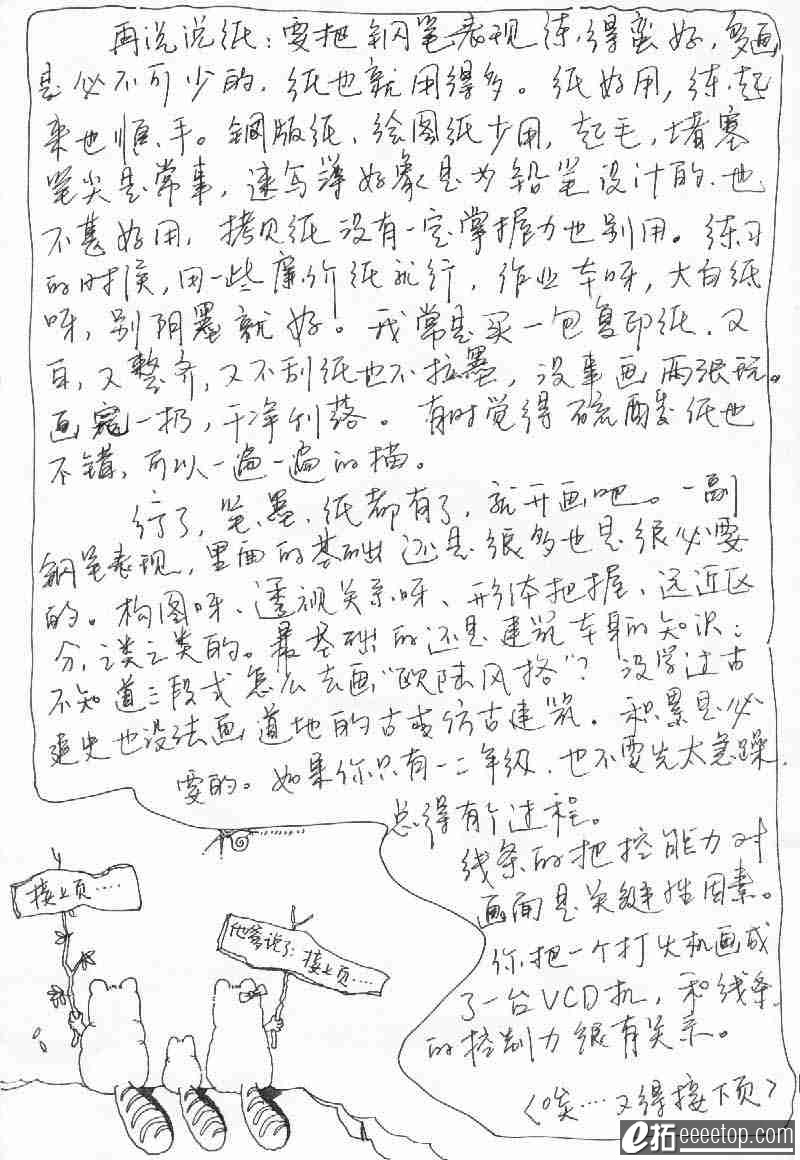 再说说纸：要把钢笔表现练得蛮好，多画
是必不可少的．纸也就用得多。纸好用，练起
来也顺手。铜版纸、绘图纸少用，起毛，堵塞
笔尖是常事，速写簿好象是为铅笔设计的．也
不甚好用，拷贝纸没有一定掌握力也别用。练习
的时候，用一些廉价纸就行，作业本呀，大白纸
呀，别阴墨就好。我常是买一包复印纸．又
白，又整齐，又不刮纸也不拉墨，没事画两张玩。
画完一扔，干净利落。有时觉得硫酸纸也
不错，可以一遍一遍的描。
行了，笔、墨、纸都有了，就开画吧。一副
钢笔表现，里面的基础还是很多也是很必要
的。构图呀、透视关系呀、形体把握、远近区
分，之类之类的。最基础的还是建筑本身的知识：
不知道三段式怎么去画“欧陆风格”？没学过古
建史也没法画道地的古或仿古建筑．积累是必
要的。如果你只有一二年级．也不要先太急躁．
总得有个过程。
线条的把控能力对
画面是关键性因素。
你把一个打火机画成
了一台VCD机，和线条
的控制力很有关系。
〈唉…又得接下页〉
接上页……
他爹说了：接上页……
e拓 eeeetop.com